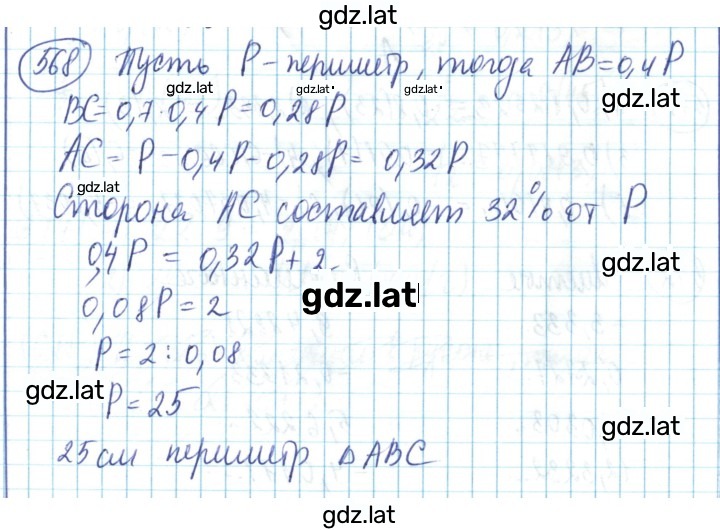 gdz.lat
568 Пусть P - периметр, тогда AB=0,4P
gdz.lat gdz.lat gdz.lat
BC=0,7·0,4P=0,28P
gdz.lat
AC= P-0,4P-0,28P= 0,32P
gdz.lat
Сторона AC составляет 32% от P
0,4P = 0,32P+2.
gdz.lat
gdz.lat
0,08P=2
P=2:0,08
gdz.lat
P=25
gdz.lat
25см периметр △ABC
gdz.lat